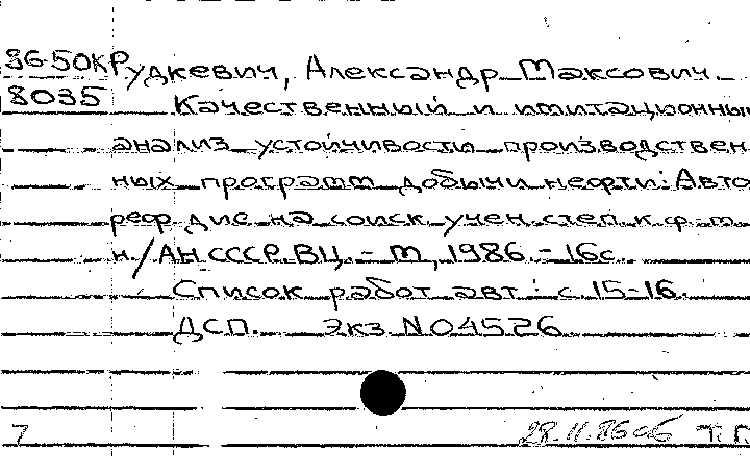 86-50КР
8035
Рудкевич, Александр Максович
Качественный и имитационный
анализ устойчивости производствен
ных программ добычи нефти: Авто
реф дис на соиск учен степ к ф-м
н/АН СССР. ВЦ. - М, 1986. - 16с.
Список работ авт: с 15-16.
ДСП. Экз N04526
7 28.11.86 Т. Г